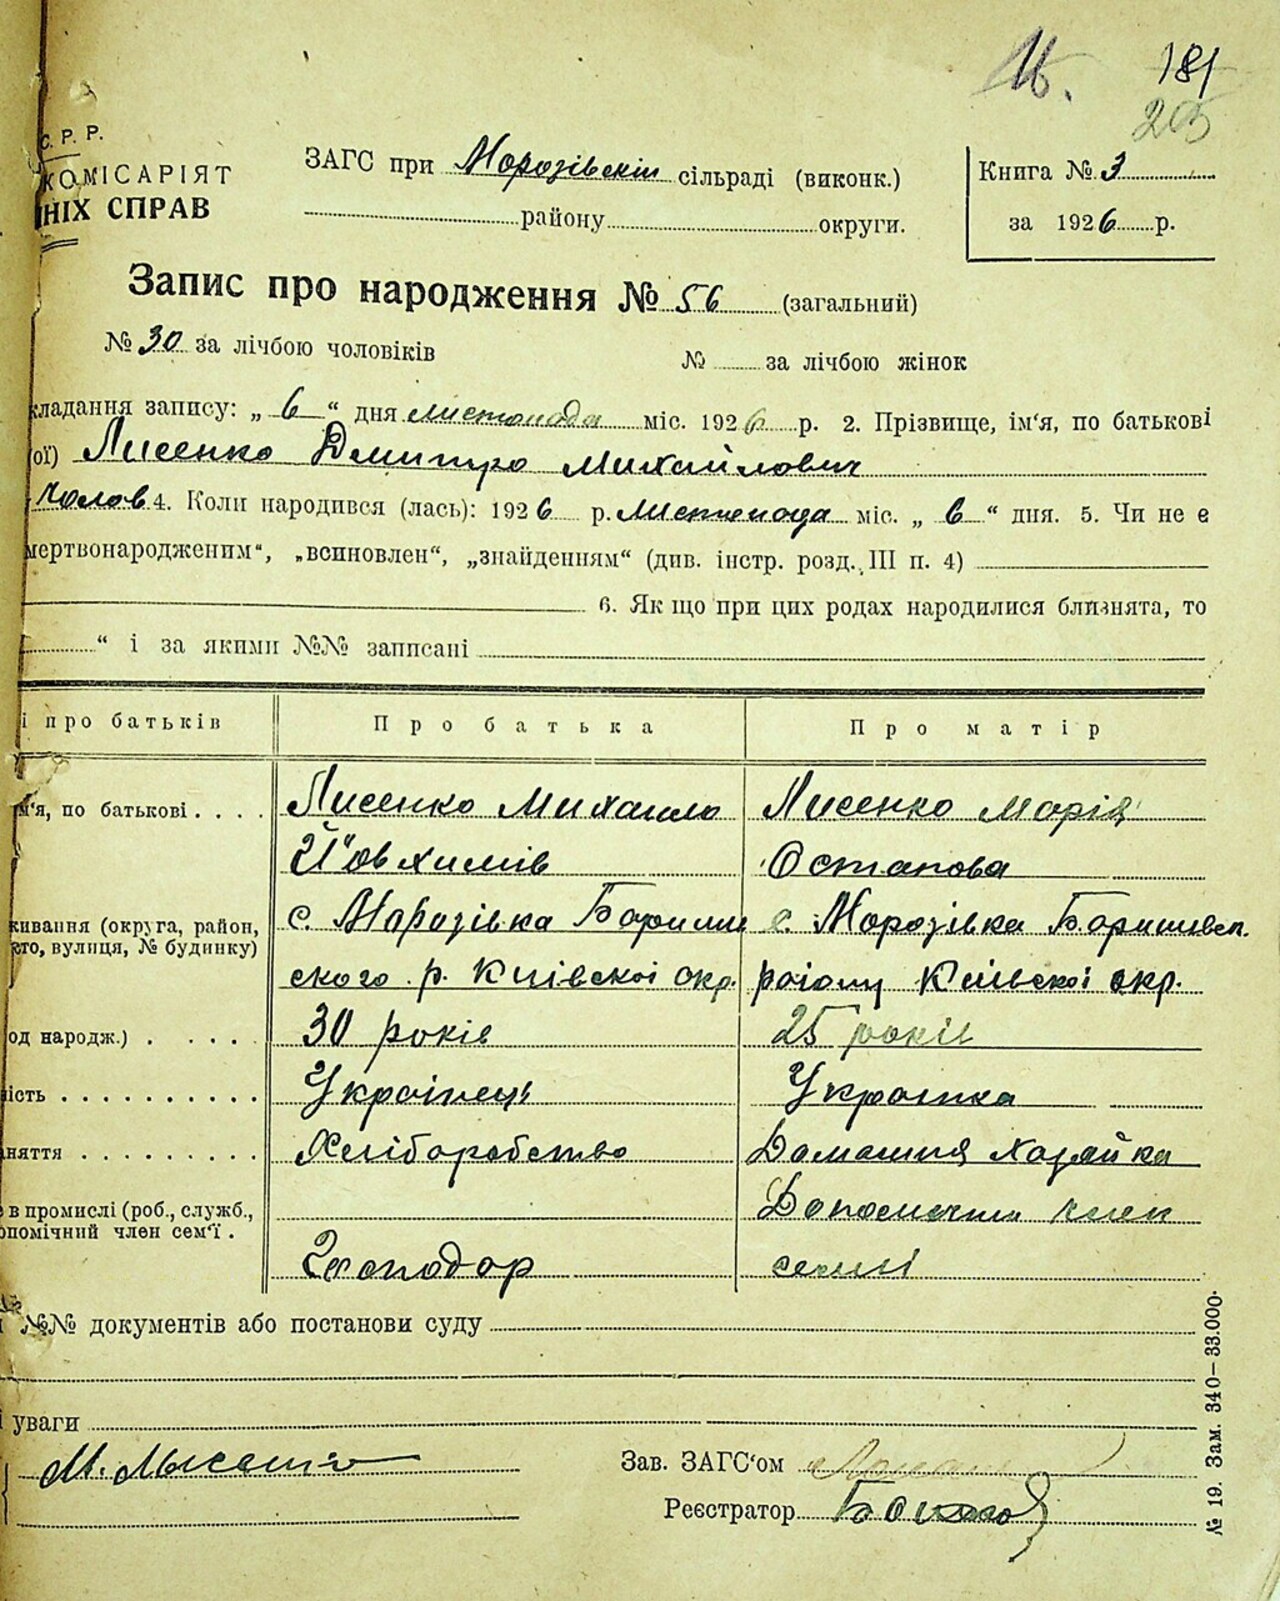 16.
181
205
С. Р. Р.
КОМІСАРІЯТ
НІХ СПРАВ
ЗАГС при Морозівскій сільраді (виконк.)
району округи.
Книга № 3
за 1926 р.
Запис про народження № 56 (загальний)
№ 30 за лічбою чоловіків № за лічбою жінок
кладання запису: „ 6 “ дня листопада міс. 1926 р. 2. Прізвище, ім'я, по батькові
ої) Лисенко Дмитро Михайлович
Чолов 4. Коли народився (лась): 1926 р. листопада міс. „ 6 “ дня. 5. Чи не є
мертвонародженим“, „всиновлен“, „знайденням“ (див. інстр. розд. III п. 4)
6. Як що при цих родах народилися близнята, то
“ і за якими №№ записані
і про батьків Про батька Про матір
м'я, по батькові . . . . Лисенко Михаило Лисенко Марія
Йовхимів Остапова
живання (округа, район, с. Морозівка Бариши с. Морозівка Баришевск.
сто, вулиця, № будинку)
ского р. Київскоі окр. раіону Київскоі окр.
од народж.) . . . . . 30 років 25 років
ість . . . . . . . . . . Украінець Украінка
няття . . . . . . . . . Хліборобство Домашня Хазяйка
в промислі (роб., служб., Допоможни член
опомічний член сем'ї . Господор семіі
№№ документів або постанови суду
уваги
М. Лысенко
Зав. ЗАГС'ом
Реєстратор
№ 19. Зам. 340—33.000.